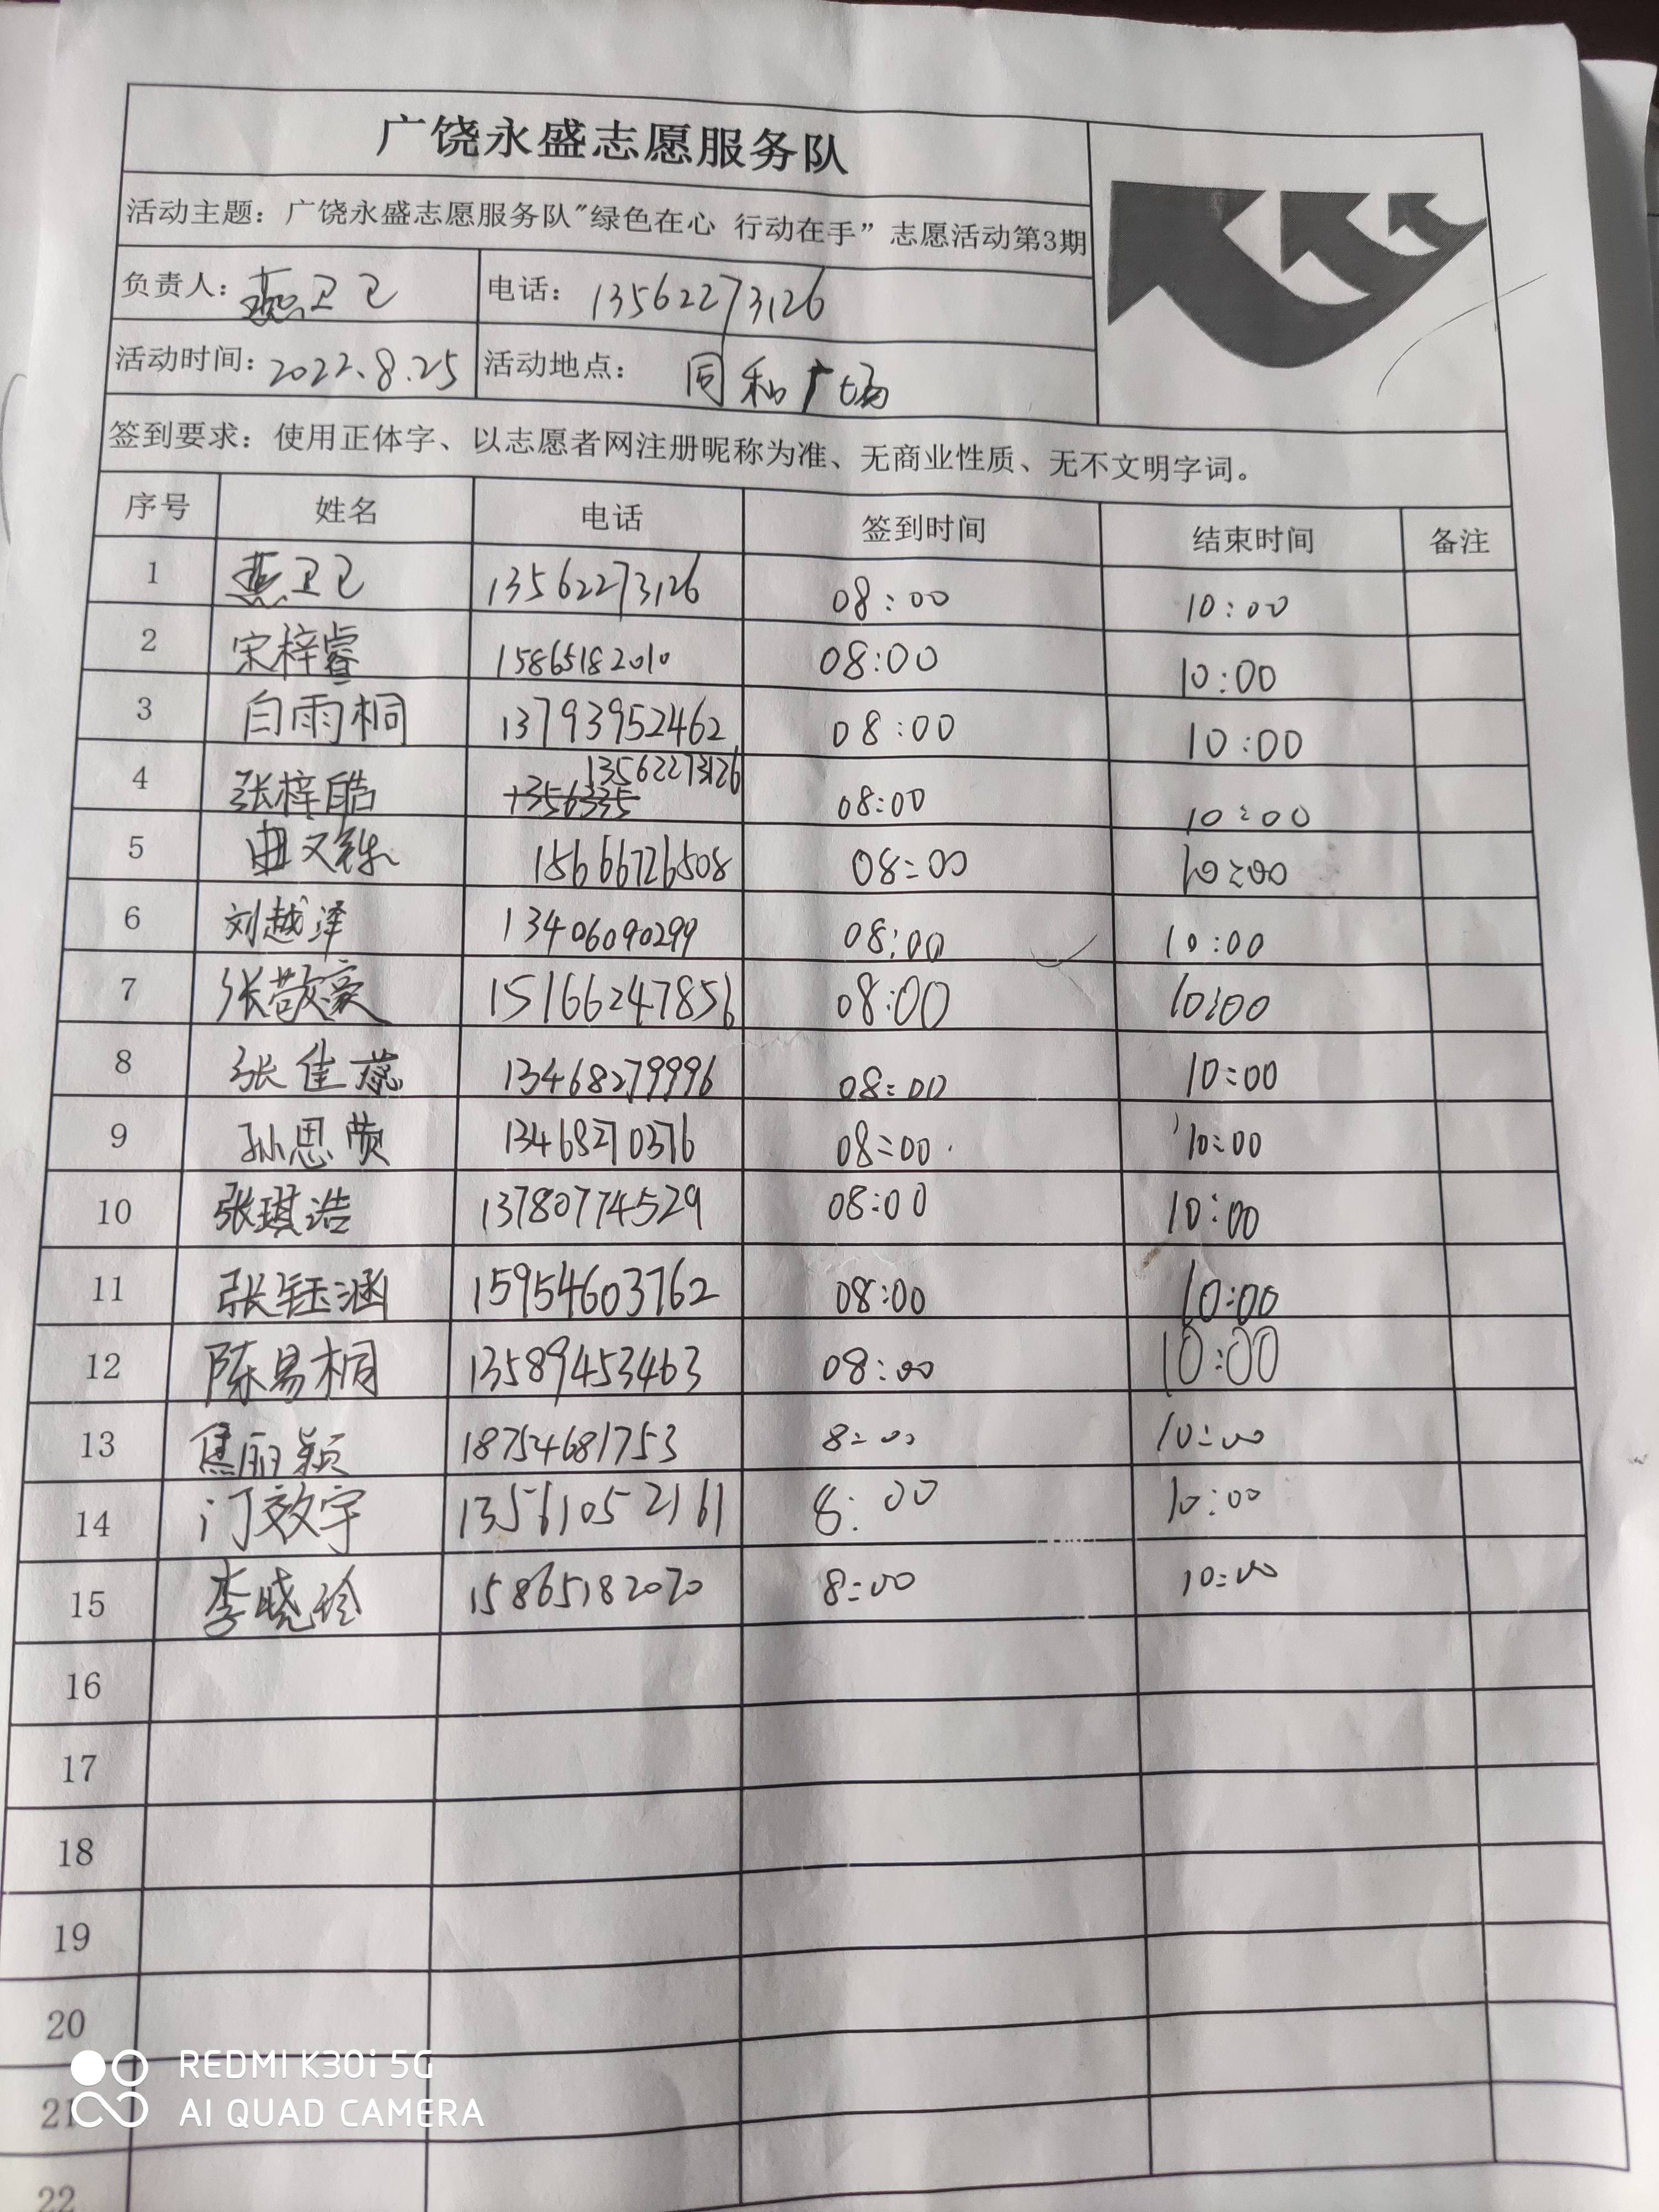 广饶永盛志愿服务队
活动主题：广饶永盛志愿服务队"绿色在心 行动在手” 志愿活动第3期
负责人：燕卫卫 电话：13562273126
活动时间：2022.8.25 活动地点：同和广场
签到要求：使用正体字、以志愿者网注册昵称为准、无商业性质、无不文明字词。
序号 姓名 电话 签到时间 结束时间 备注
1 燕卫卫 13562273126 08:00 10:00
2 宋梓睿 15865182010 08:00 10:00
3 白雨桐 13793952462 08:00 10:00
4 张梓皓 13562273126 08:00 10:00
5 曲又铄 15666726508 08:00 10:00
6 刘越泽 13406090299 08:00 10:00
7 张敬豪 15166247856 08:00 10:00
8 张佳蕊 13468279996 08:00 10:00
9 孙思赞 13468270376 08:00 10:00
10 张琪浩 13780774529 08:00 10:00
11 张钰涵 15954603762 08:00 10:00
12 陈易桐 13589453463 08:00 10:00
13 焦丽颖 18754681753 8:00 10:00
14 门效宇 13561052161 8:00 10:00
15 李晓玲 15865182070 8:00 10:00
16
17
18
19
20
21
22
REDMI K30i 5G
AI QUAD CAMERA